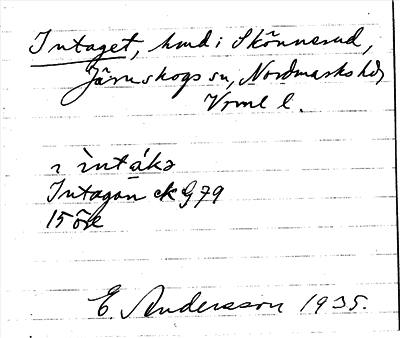 Intaget, hmd i Skönnerud,
Järnskogs sn, Nordmarks hd,
Vrml l.
ı ìntákə
Intagan ek G79
15 öre
E. Andersson 1935.